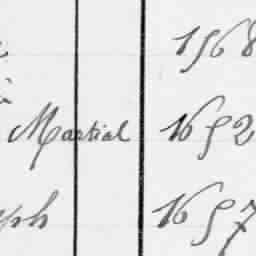 1568
Martial 1652
ph 1657